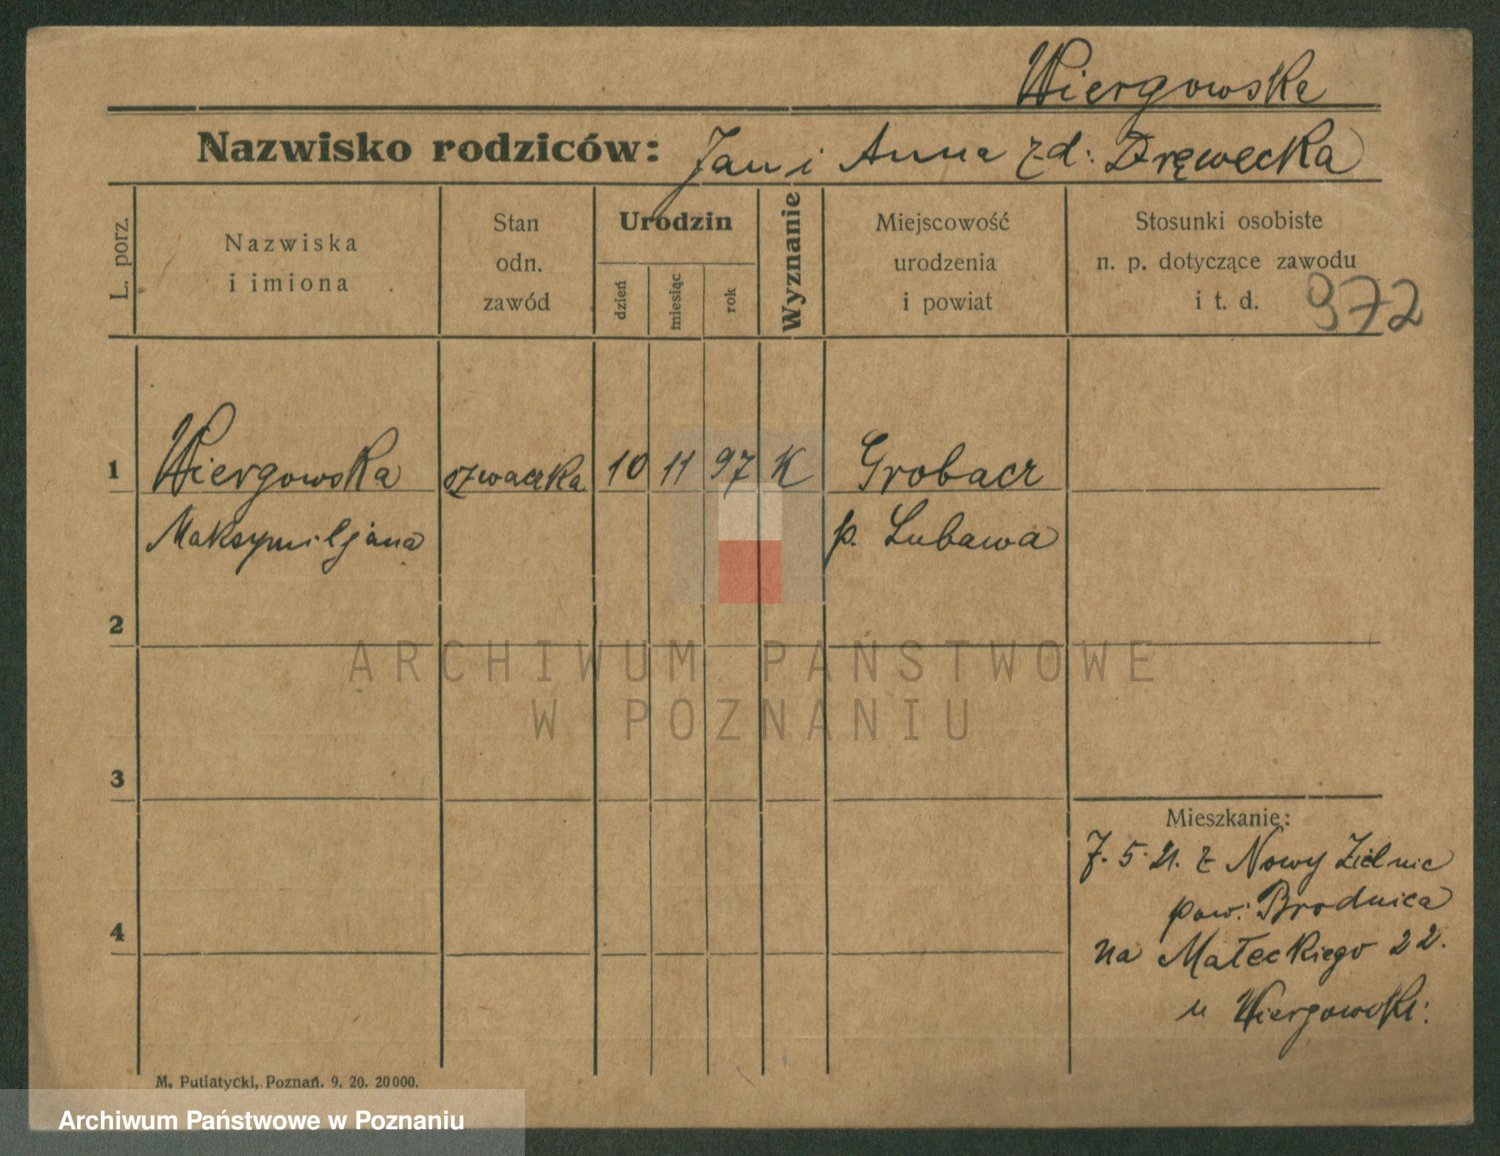 Wiergowska
Nazwisko rodziców: Jan i Anna z d: Dręwecka
L. porz.
Nazwiska
i imiona
Stan
odn.
zawód
Urodzin
dzień
miesiąc
rok
Wyznanie
Miejscowość
urodzenia
i powiat
Stosunki osobiste
n. p. dotyczące zawodu
i t. d.
972
1 Wiergowska szwaczka 10 11 97 K Grobacz
Maksymiljana p. Lubawa
2
3
4
ARCHIWUM PAŃSTWOWE
W POZNANIU
Mieszkanie:
7. 5. 21. z Nowy Zielnic
pow: Brodnica
na Małeckiego 22.
u Wiergowski:
M. Putiatycki, Poznań. 9. 20. 20000.
Archiwum Państwowe w Poznaniu